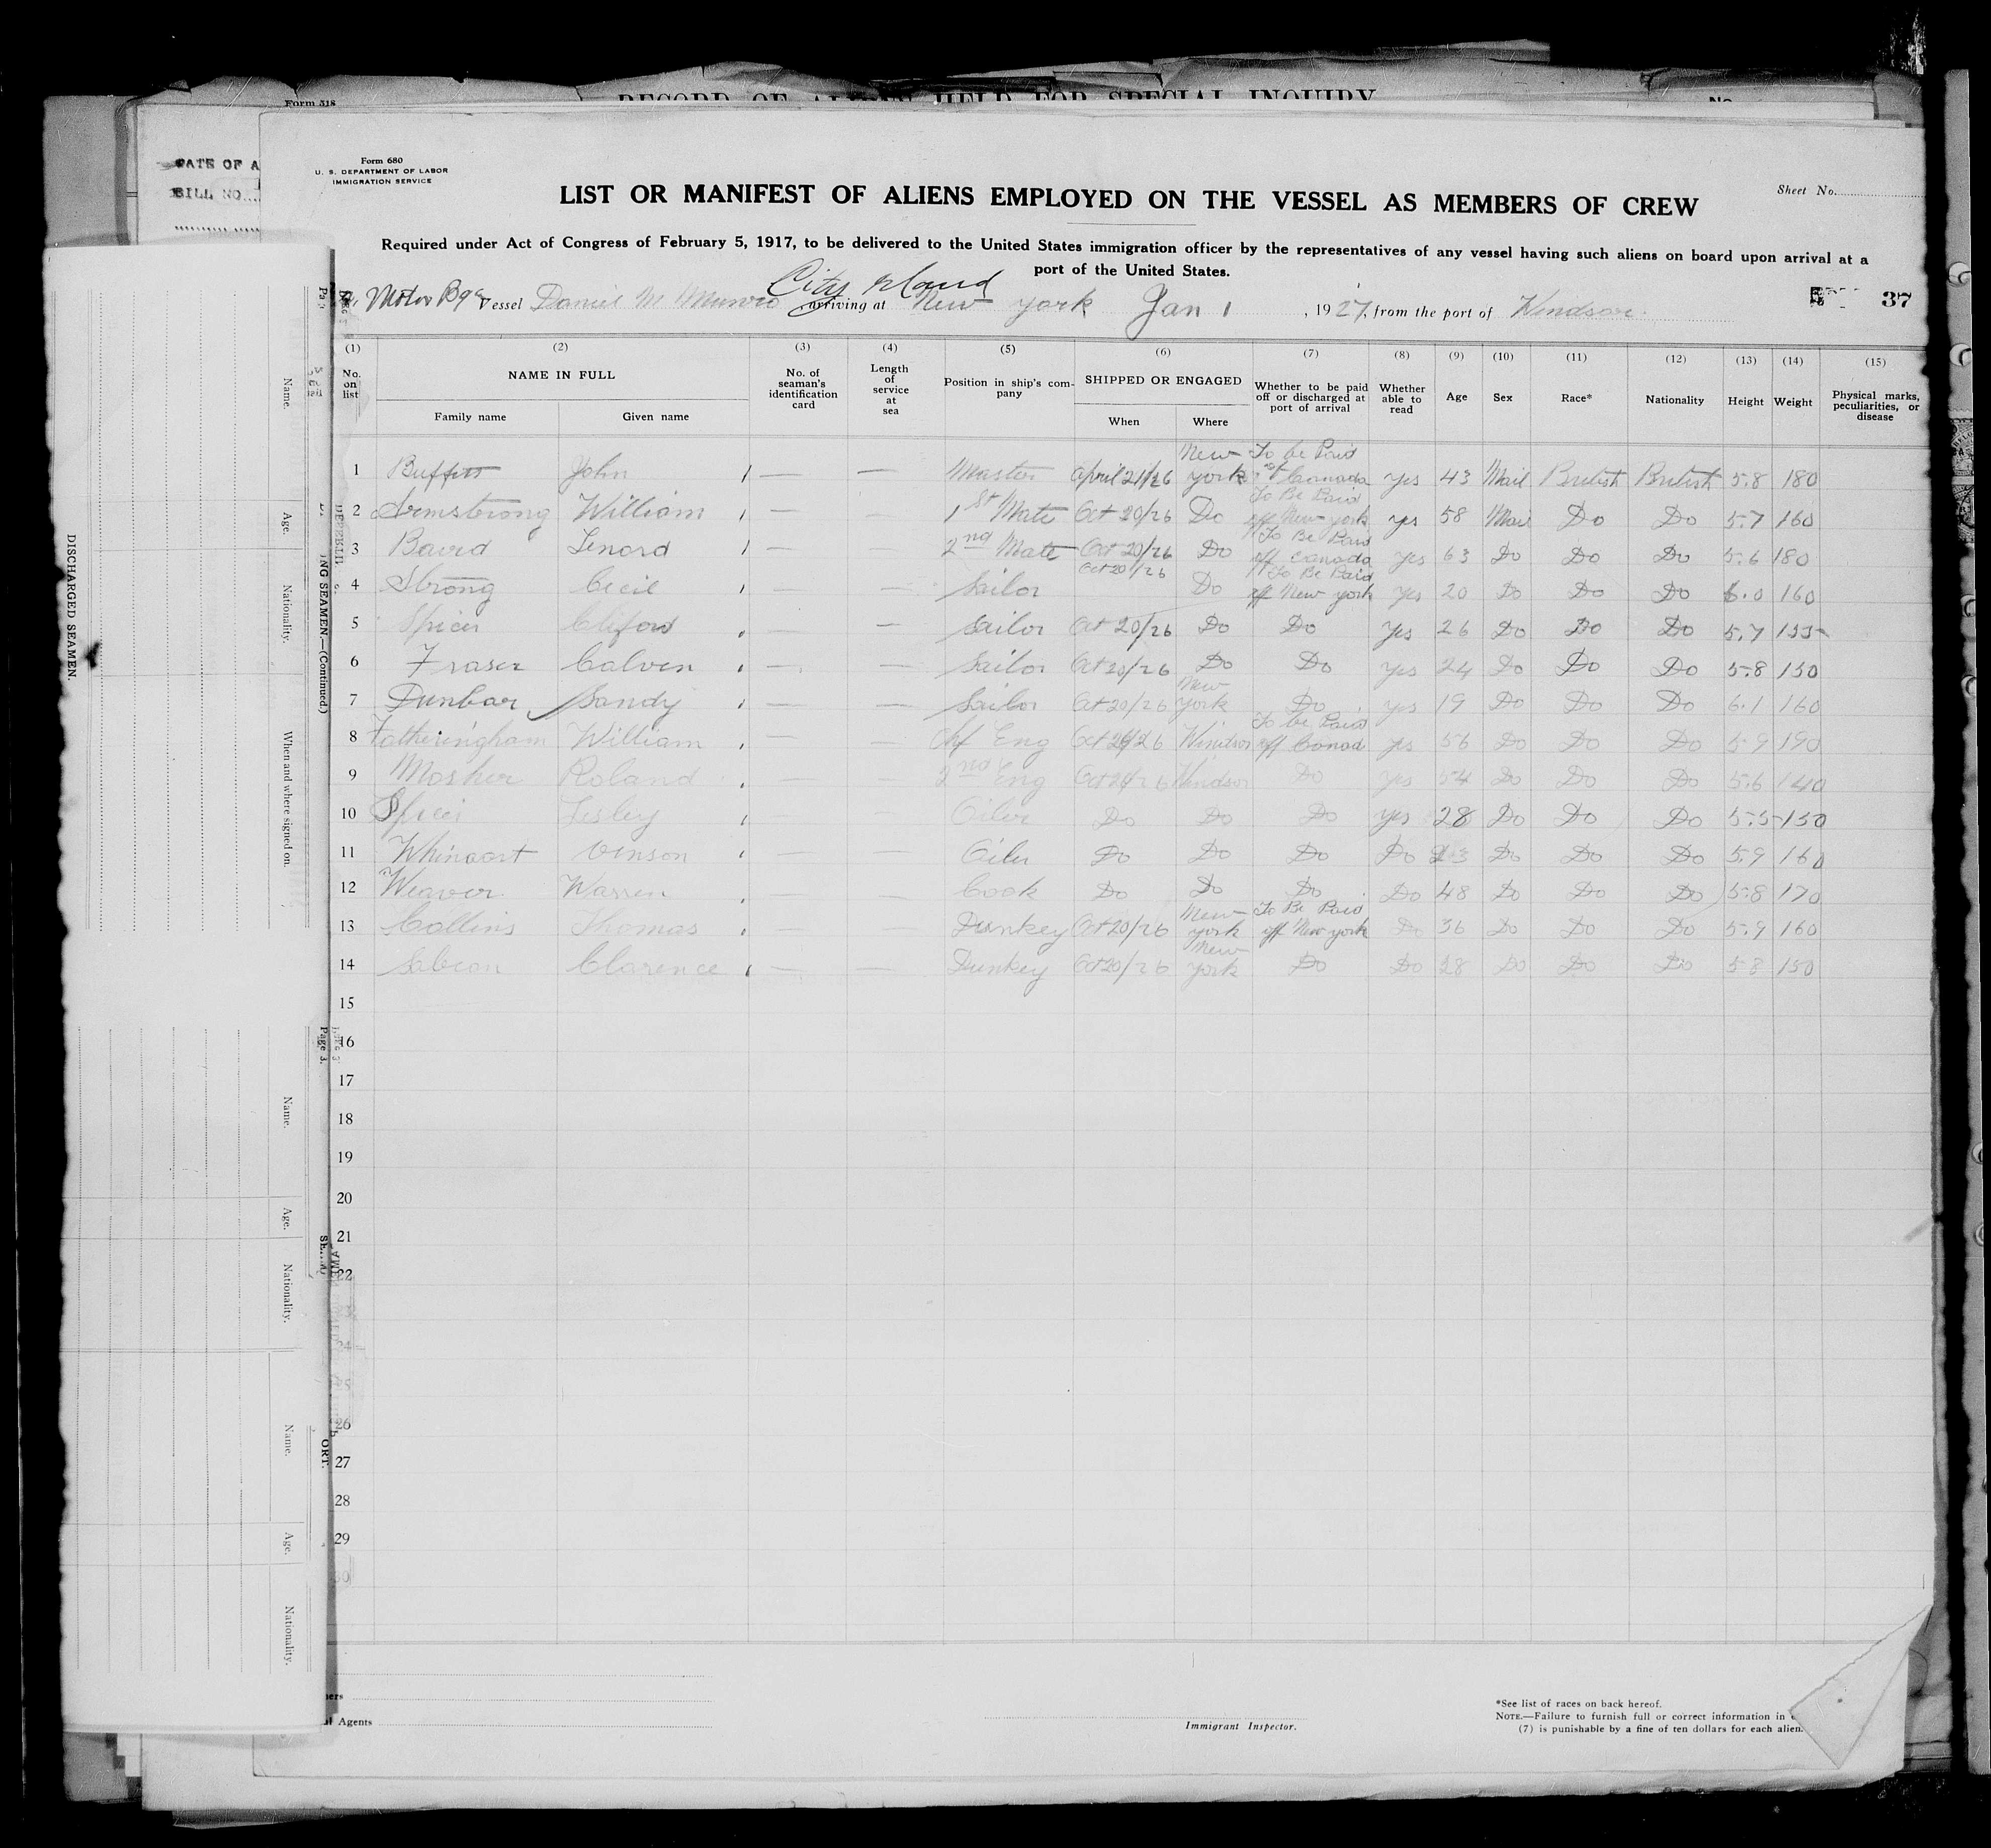 Form 518
RECORD OF ALIENS HELD FOR SPECIAL INQUIRY
No
DATE OF A
BILL NO....
Form 680
U. S. DEPARTMENT OF LABOR
IMMIGRATION SERVICE
Sheet No.
LIST OR MANIFEST OF ALIENS EMPLOYED ON THE VESSEL AS MEMBERS OF CREW
Required under Act of Congress of February 5, 1917, to be delivered to the United States immigration officer by the representatives of any vessel having such aliens on board upon arrival at a
port of the United States.
City Island
Motor Bge Vessel Daniel M Munro arriving at New york Jan 1, 1927, from the port of Windsor
37
(1) (2) (3) (4) (5) (6) (7) (8) (9) (10) (11) (12) (13) (14) (15)
No. on list
NAME IN FULL
Family name Given name
No. of seaman's identification card
Length of service at sea
Position in ship's company
SHIPPED OR ENGAGED
When Where
Whether to be paid off or discharged at port of arrival
Whether able to read
Age
Sex
Race*
Nationality
Height
Weight
Physical marks, peculiarities, or disease
1 Buffett John — — Master April 21/26 New york To be Paid off Canada yes 43 Mail British British 5.8 180
2 Armstrong William — — 1st Mate Oct 20/26 Do To Be Paid off New york yes 58 Mail Do Do 5.7 160
3 Baird Lenord — — 2nd Mate Oct 20/26 Do To Be Paid off Canada yes 63 Do Do Do 5.6 180
4 Strong Cecil — — Sailor Oct 20/26 Do To Be Paid off New york yes 20 Do Do Do 6.0 160
5 Spicer Cliford — — Sailor Oct 20/26 Do Do yes 26 Do Do Do 5.7 155
6 Fraser Calven — — Sailor Oct 20/26 Do Do yes 24 Do Do Do 5.8 150
7 Dunbar Sandy — — Sailor Oct 20/26 New york Do yes 19 Do Do Do 6.1 160
8 Fatheringham William — — Chf Eng Oct /26 Windsor To be Paid off Canad yes 56 Do Do Do 5.9 190
9 Mosher Roland — — 2nd Eng Oct /26 Windsor Do yes 54 Do Do Do 5.6 140
10 Spicer Lesley — — Oiler Do Do Do yes 28 Do Do Do 5.5 150
11 Whinoort Venson — — Oiler Do Do Do Do 23 Do Do Do 5.9 160
12 Weaver Warren — — Cook Do Do Do Do 48 Do Do Do 5.8 170
13 Collins Thomas — — Dunkey Oct 20/26 New york To Be Paid off New york Do 36 Do Do Do 5.9 160
14 Sabean Clarence — — Dunkey Oct 20/26 New york Do Do 28 Do Do Do 5.8 150
15
16
17
18
19
20
21
22
23
24
25
26
27
28
29
30
Agents
Immigrant Inspector.
*See list of races on back hereof.
NOTE.—Failure to furnish full or correct information in
(7) is punishable by a fine of ten dollars for each alien.
DISCHARGED SEAMEN.
Name.
Age.
Nationality.
When and where signed on.
NG SEAMEN—(Continued)
Page 3.
Name.
Age.
Nationality.
Name.
Age.
Nationality.
ORT.